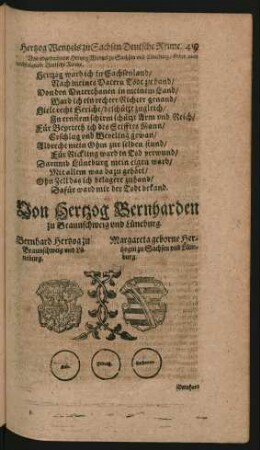 Hertzog Wentzels zu Sachsen Deutsche Reime. 419
Von obgedachtem Hertzog Wentzel zu Sachsen und Lüneburg / findet man
nachfolgende Deutsche Reime.
Hertzog ward ich in Sachsenland /
Nach meines Vatern Tode zuhand /
Von den Unterthanen in meinem Land /
Ward ich ein rechter Richter genand /
Hielt recht Gericht / beschützt zugleich /
In ernstem schirm schützt Arm und Reich /
Für Beyrieth ich des Stifftes Mann /
Albrecht mein Ohm zur selben stund /
Für Rickling ward in Tod verwund /
Darumb Lüneburg mein eigen ward /
Mit allem was dazu gehört /
Ohn Zell das ich belagert zuhand /
Dafür ward mir der Todt bekand.
Von Hertzog Bernharden
zu Braunschweig und Lüneburg.
Bernhard Hertzog zu
Braunschweig und Lü-
neburg.
Margareta geborne Her-
zogin zu Sachsen und Lüne-
burg.
Bernhard